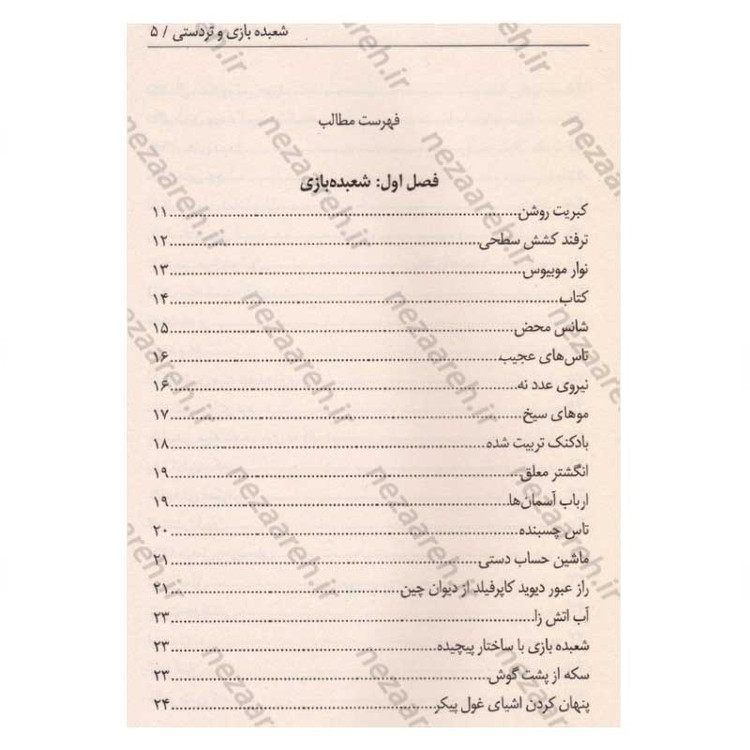 شعبده بازی و تردستی / ۵
فهرست مطالب
فصل اول: شعبده‌بازی
کبریت روشن............۱۱
ترفند کشش سطحی............۱۲
نوار موبیوس............۱۳
کتاب............۱۴
شانس محض............۱۵
تاس‌های عجیب............۱۶
نیروی عدد نه............۱۶
موهای سیخ............۱۷
بادکنک تربیت شده............۱۸
انگشتر معلق............۱۹
ارباب آسمان‌ها............۱۹
تاس چسبنده............۲۰
ماشین حساب دستی............۲۱
راز عبور دیوید کاپرفیلد از دیوان چین............۲۱
آب اتش زا............۲۳
شعبده بازی با ساختار پیچیده............۲۳
سکه از پشت گوش............۲۳
پنهان کردن اشیای غول پیکر............۲۴
nezaareh.ir